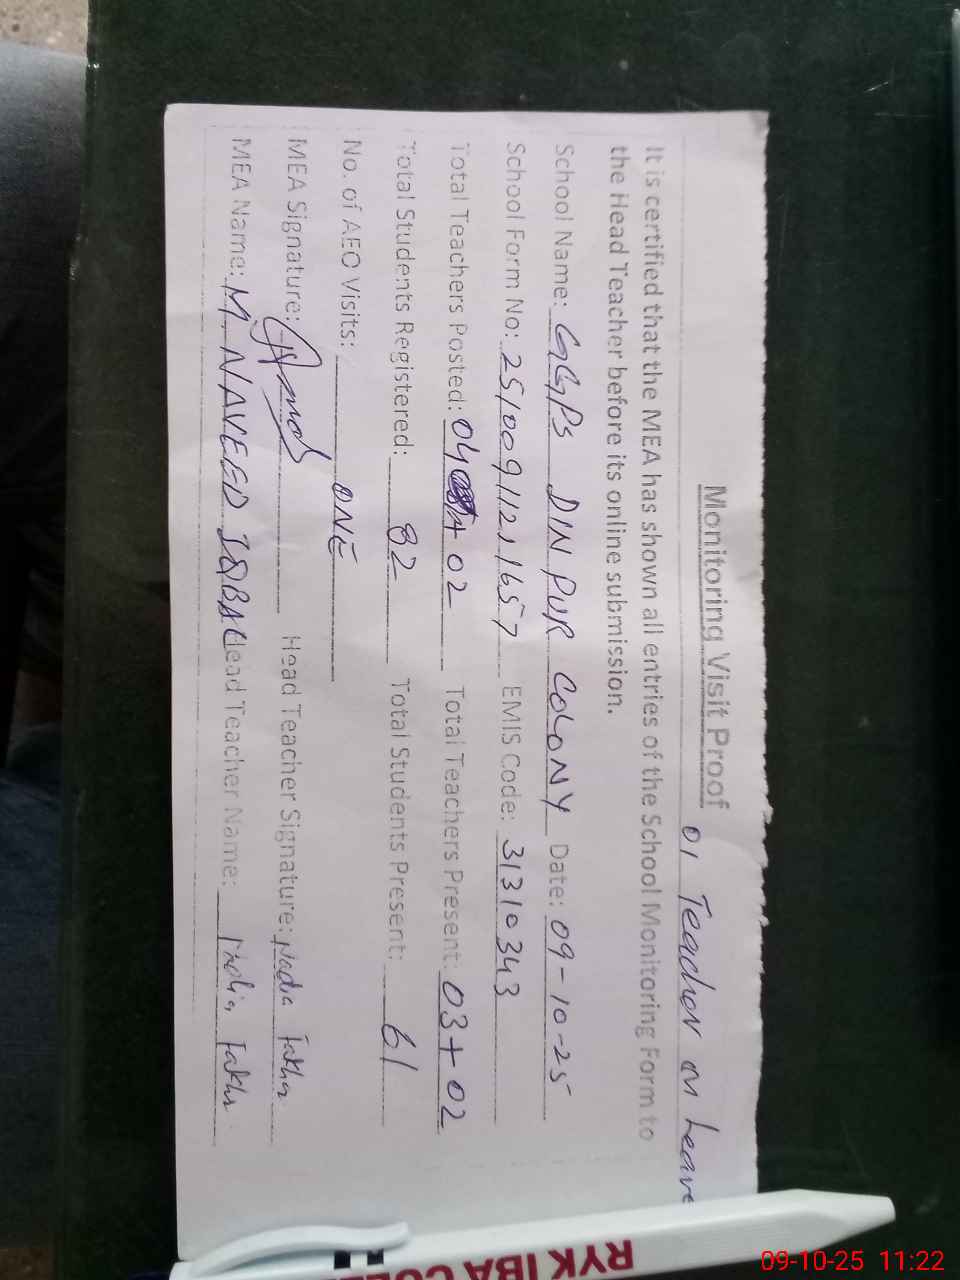 Monitoring Visit Proof
01 Teacher on Leave
It is certified that the MEA has shown all entries of the School Monitoring Form to
the Head Teacher before its online submission.
School Name: GGPS DIN PUR COLONY Date: 09-10-25
School Form No: EMIS Code: 31310343
Total Teachers Posted: 04 + 02 Total Teachers Present: 03 + 02
Total Students Registered: 82 Total Students Present: 61
No. of AEO Visits: ONE
MEA Signature: Head Teacher Signature: Nadia Fakhr
MEA Name: M NAVEED IQBAL Head Teacher Name: Nadia Fakhr
RYK IBA
09-10-25 11:22